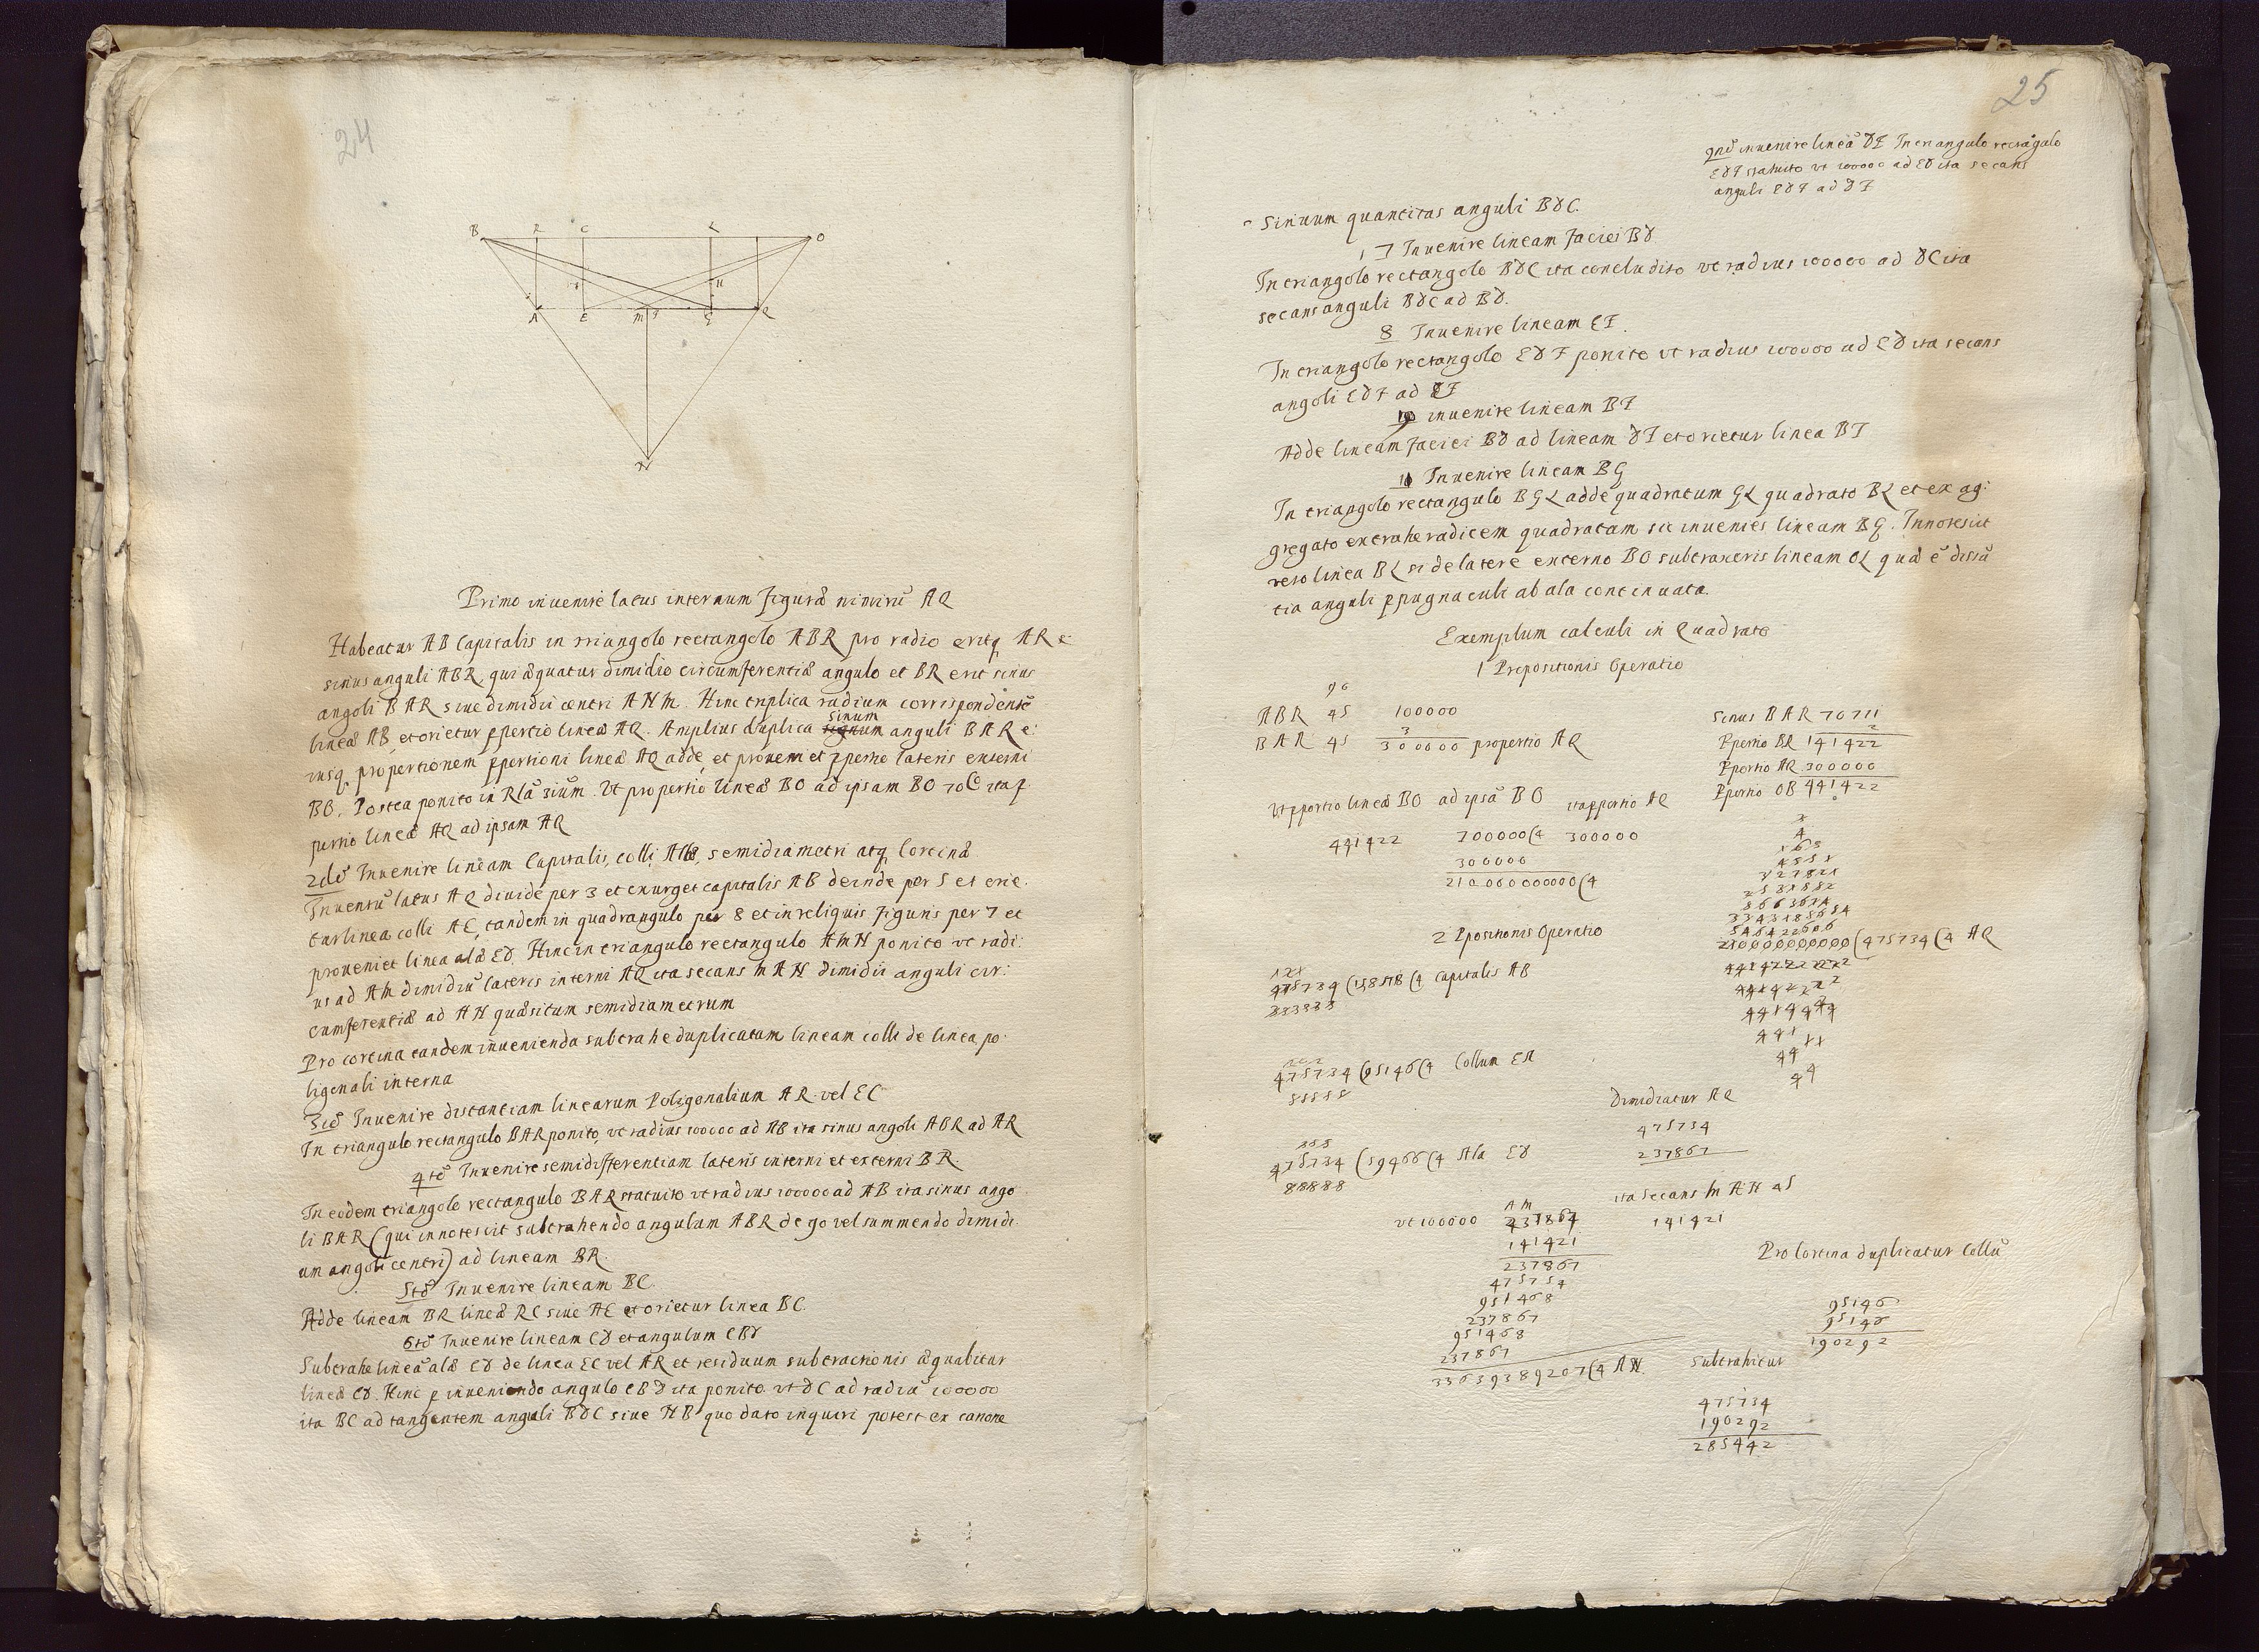 24
B R C L O
A E M I G Q
N
Primo inuenire latus internum figuræ nimirũ AQ
Habeatur AB Capitalis in triangolo rectangolo ABR pro radio eritq AR
sinus anguli ABR, qui æquatur dimidio circumferentiæ angulo et BR erit sinus
angoli BAR siue dimidii centri ANM. Hinc triplica radium correspondentẽ
lineæ AB, et orietur ppertio lineæ AQ. Amplius duplica sinum anguli BAR
iusq propertionem ppertioni lineæ AQ adde, et prouem et ppertio lateris externi
BO. Postea ponito in Rlã 3ium. Vt propertio lineæ BO ad ipsam BO 70 ita p
pertio lineæ AQ ad ipsam AQ
2dõ Inuenire lineam Capitalis, colli, Alæ, semidiametri atq Cortinæ
Inuentũ latus AQ diuide per 3 et exurget capitalis AB deinde per 5 et orie
tur linea colli AE, tandem in quadrangulo per 8 et in reliquis figuris per 7 et
proueniet linea alæ ED. Hinc in triangulo rectangulo AMN ponito vt radi:
us ad AM dimidiũ lateris interni AQ ita secans MAN dimidii anguli cir:
cumferentiæ ad AN quæsitum semidiametrum
Pro cortina tandem inuenienda subtrahe duplicatam lineam colli de linea po:
ligonali interna
3iõ Inuenire distantiam linearum Poligonalium AR vel EC
In triangulo rectangulo BAR ponito, vt radius 100000 ad AB ita sinus angoli ABR ad AR
4tõ Inuenire semidifferentiam lateris interni et externi BR.
In eodem triangolo rectangulo BAR statuito vt radius 100000 ad AB ita sinus ango
li BAR (qui innotescit subtrahendo angulum ABR de 90 vel summendo dimidi
um angoli centri) ad lineam BR.
5tõ Inuenire lineam BC.
Adde lineam BR lineæ RC siue AE et orietur linea BC.
6tõ Inuenire lineam CD et angulum CBD
Subtrahe lineã alæ ED de linea EC vel AR et residuum subtractionis æquabitur
lineæ CD. Hinc p inueniendo angulo CBD ita ponito. vt DC ad radiũ 100000
ita BC ad tangentem anguli BDC siue NB quo dato inquiri potest ex canone
25
9nõ inuenire lineã DI In triangulo rectãgulo
EDI statuito vt 100000 ad ED ita secans
anguli EDI ad DI
Sinuum quantitas anguli BDC.
7 Inuenire lineam faciei BD
In triangolo rectangolo BDC ita concludito vt radius 100000 ad DC ita
secans anguli BDC ad BD.
8 Inuenire lineam EI.
In triangolo rectangolo EDI ponito vt radius 100000 ad ED ita secans
angoli EDI ad EI
10 inuenire lineam BI
Adde lineam faciei BD ad lineam DI et orietur linea BI
11 Inuenire lineam BG
In triangolo rectangulo BGL adde quadratum GL quadrato BL et ex ag:
gregato extrahe radicem quadratam sic inuenies lineam BG. Innotescit
vero linea BL si de latere externo BO subtraxeris lineam OL quæ ẽ distã
tia anguli ppugnaculi ab ala continuata.
Exemplum calculi in Quadrato
1 Prepositionis Operatio
90
ABR 45 100000 Sinus BAR 70711
3 2
BAR 45 300000 propertio AQ Ppertio BR 141422
Ppertio AQ 300000
Ppertio OB 441422
Vt ppertio lineæ BO ad ipsã BO ita ppertio AQ
441422 700000(4 300000
300000
210000000000(4
2 Ppositionis Operatio
210000000000(475734(4 AQ
475734 (158578(4 Capitalis AB
333333
475734 (95146(4 Collum EA
55555
Dimidiatur AQ
475734
237867
475734 (59466(4 Ala ED
88888
AM ita secans MAN 45
vt 100000 237867 141421
141421
237867
475734
951468
237867
951468
237867
33639389207(4 AN.
Pro Cortina duplicatur Collũ
95146
95146
190292
Subtrahitur
475734
190292
285442